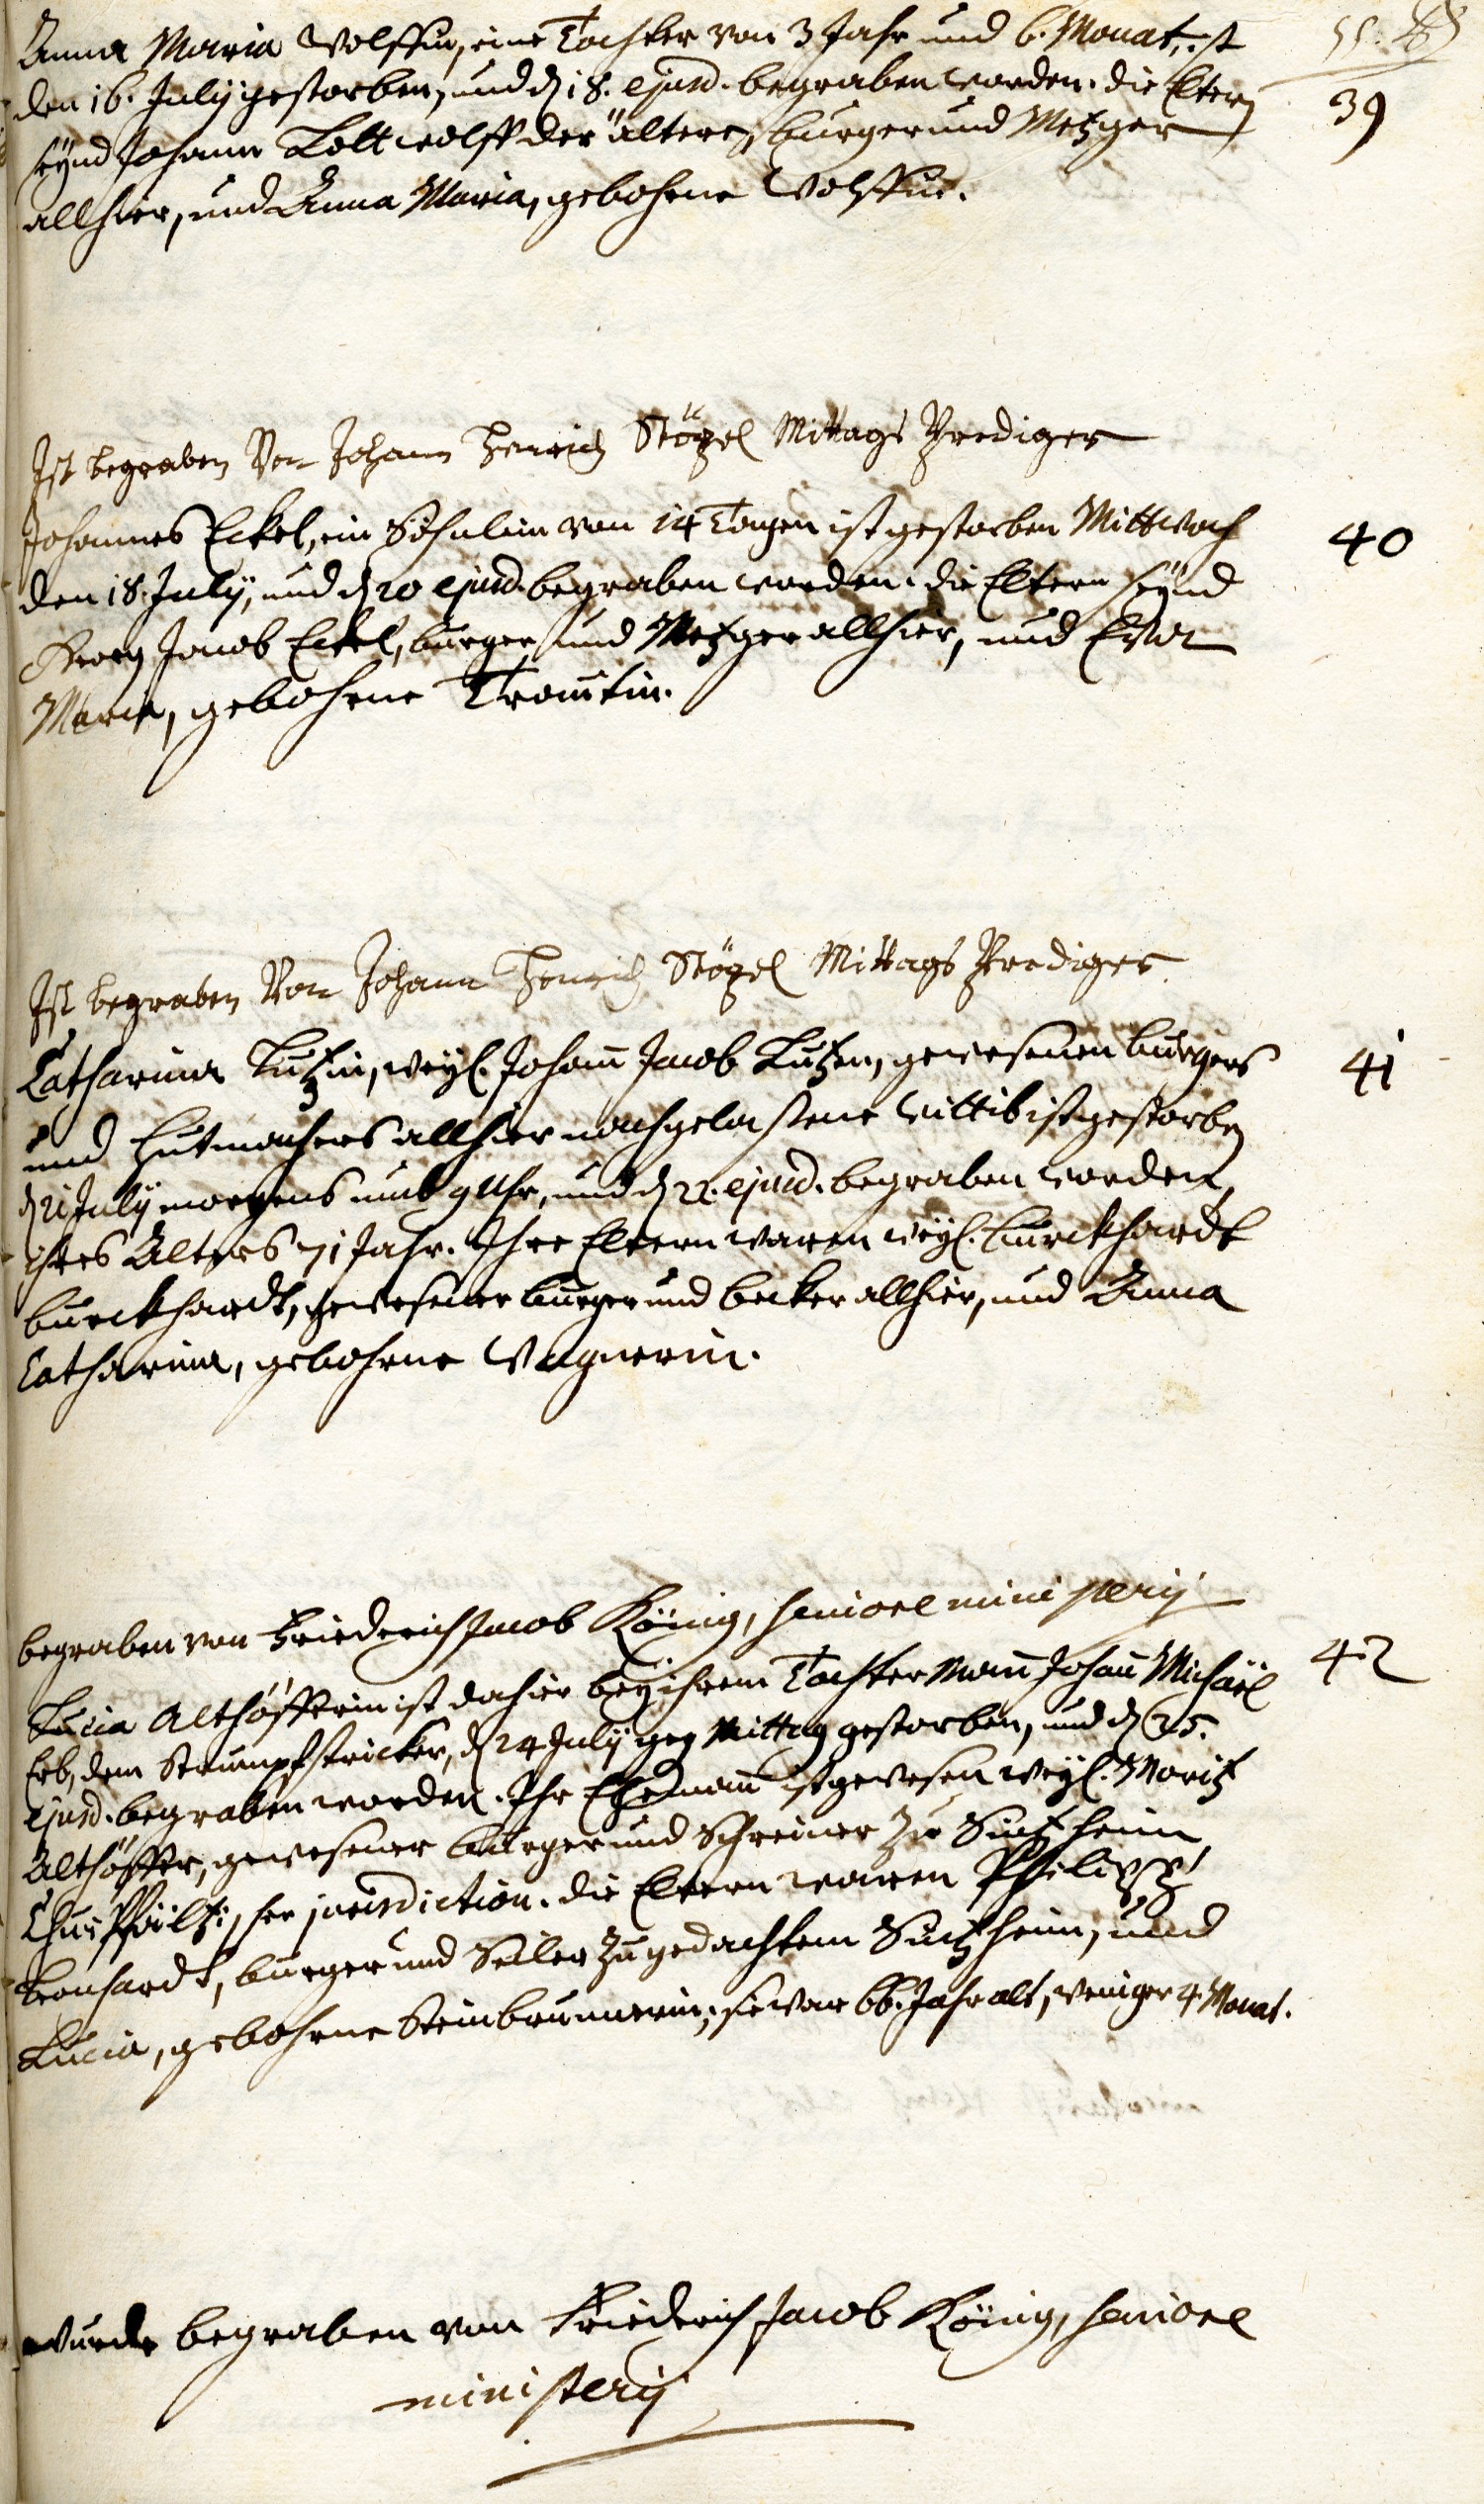 Anna Maria Wolffin, eine Tochter von 3 Jahr und 6. Monat, ist
den 16. July gestorben, und d. 18. ejusd. begraben worden. die Eltern
39
seynd Johann Wolff der ältere, burger und Metzger
allhier, und Anna Maria, gebohrne Wolffin.
Ist begraben Von Johann Henrich Stözel Mittags Prediger
Johannes Eckel, ein Söhnlein von 14 Tagen ist gestorben Mittwoch
40
den 18. July, und d. 20 ejusd. begraben worden. die Eltern seynd
Georg Jacob Eckel, burger und Metzger allhier, und Eva
Maria, gebohrne
Ist begraben Von Johann Henrich Stözel Mittags Prediger
Catharina Lutzin, weyl. Johann Jacob Lutzen, gewesenen burgers
41
und Hutmachers allhier nachgelassene Wittib ist gestorben
d. 21 July morgens umb 9 Uhr, und d. 22. ejusd. begraben worden,
ihres Alters 71 Jahr. Ihre Eltern waren weyl. burckhardt
burckhardt, gewesener burger und becker allhier, und Anna
Catharina, gebohrne Wagnerin.
begraben von Friederich Jacob König, seniore ministerij
42
Lucia Althöfferin ist dahier bey ihrem Tochter Mann Johann Michäel
Erb, dem Strumpfstricker, d. 24 July geg. Mittag gestorben, und d. 25.
ejusd. begraben worden. Ihr Ehemann ist gewesen weyl. Moritz
Althöffer, gewesener burger und Schreiner zu Sintzheim,
Chur Pfältzischer jurisdiction. die Eltern waren Philipp
Leonhardt, burger und Seiler zu gedachtem Sintzheim, und
Lucia, gebohrne Steinbrunnerin, sie war 66. Jahr alt, weniger 4. Monat.
wurde begraben von Friederich Jacob König, seniore
ministerij